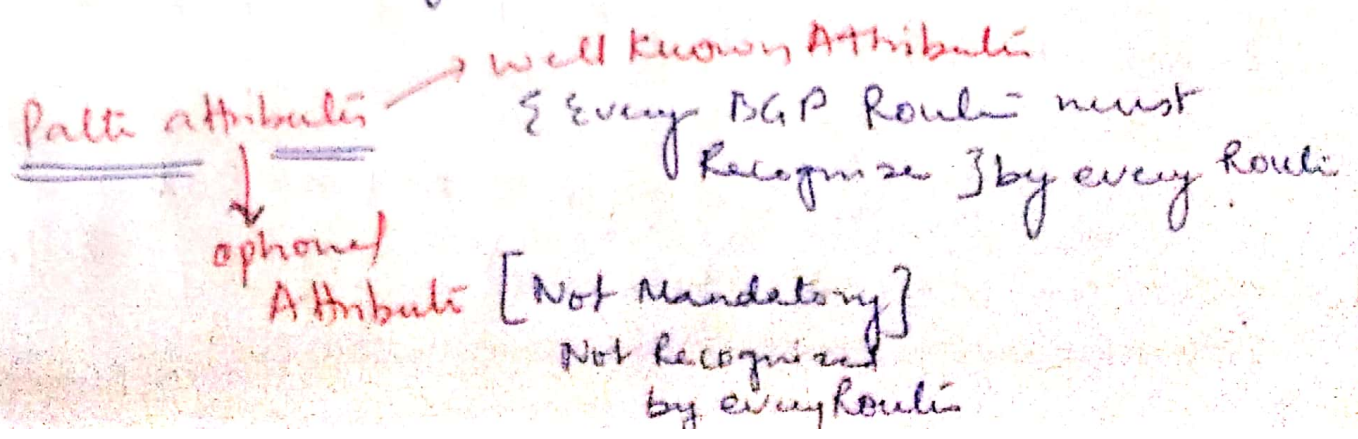 Path attributes → Well Known Attribute
{ Every BGP Router must
Recognize } by every Router
optional
Attribute [Not Mandatory]
Not Recognized
by every Router